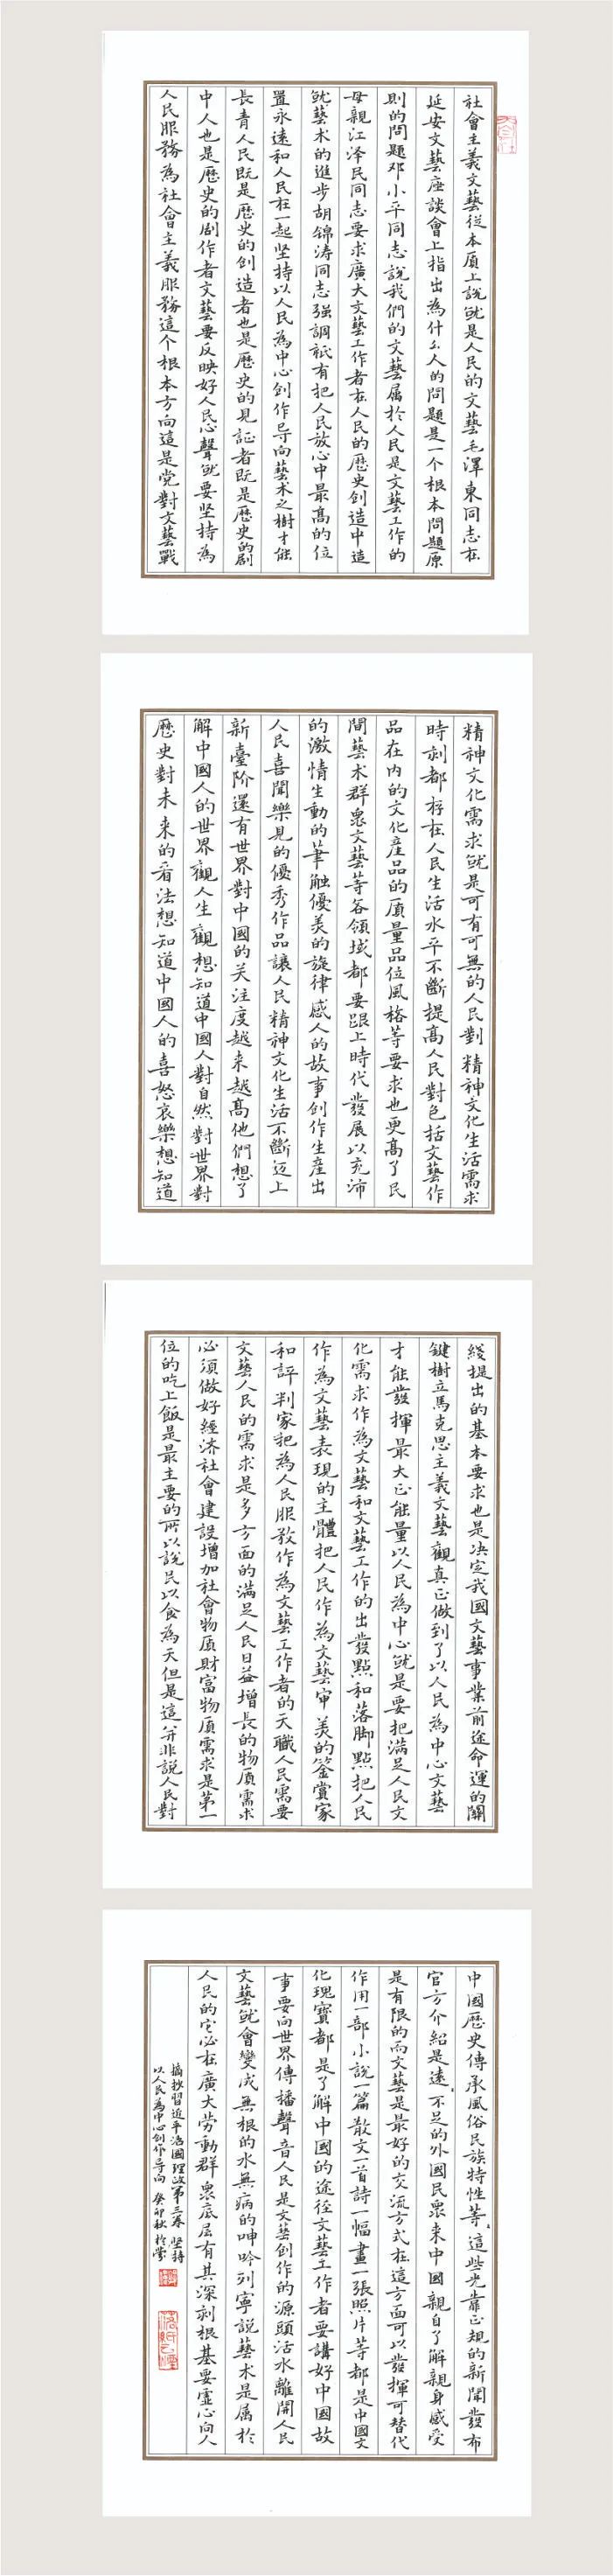 社會主義文藝從本質上說就是人民的文藝毛澤東同志在
延安文藝座談會上指出為什么人的問題是一个根本問題原
則的問題邓小平同志說我們的文藝属於人民是文藝工作的
母親江泽民同志要求廣大文藝工作者在人民的歷史創造中進
就藝术的進步胡锦涛同志强調祇有把人民放心中最高的位
置永遠和人民在一起坚持以人民為中心創作导向藝术之樹才能
長青人民既是歷史的創造者也是歷史的見証者既是歷史的剧
中人也是歷史的剧作者文藝要反映好人民心聲就要坚持為
人民服務為社會主義服務這个根本方向這是党對文藝戰
綫提出的基本要求也是决定我國文藝事業前途命運的關
鍵樹立馬克思主義文藝觀真正做到了以人民為中心文藝
才能發揮最大正能量以人民為中心就是要把满足人民文
化需求作為文藝和文藝工作的出發點和落脚點把人民
作為文藝表現的主體把人民作為文藝审美的鉴賞家
和評判家把為人民服務作為文藝工作者的天職人民需要
文藝人民的需求是多方面的满足人民日益增長的物質需求
必須做好經济社會建設增加社會物質財富物質需求是第一
位的吃上飯是最主要的所以說民以食為天但是這并非說人民對
精神文化需求就是可有可無的人民對精神文化生活需求
時刻都存在人民生活水平不斷提高人民對包括文藝作
品在内的文化産品的質量品位風格等要求也更高了民
間藝术群衆文藝等各領域都要跟上時代發展以充沛
的激情生動的筆触優美的旋律感人的故事創作生産出
人民喜聞樂見的優秀作品讓人民精神文化生活不斷迈上
新臺阶還有世界對中國的关注度越来越高他們想了
解中國人的世界觀人生觀想知道中國人對自然對世界對
歷史對未来的看法想知道中國人的喜怒哀樂想知道
中國歷史傳承風俗民族特性等這些光靠正規的新聞發布
官方介紹是遠不足的外國民衆来中國親自了解親身感受
是有限的而文藝是最好的交流方式在這方面可以發揮可替代
作用一部小說一篇散文一首詩一幅畫一張照片等都是中國文
化瑰寶都是了解中國的途径文藝工作者要講好中國故
事要向世界傳播聲音人民是文藝創作的源頭活水離開人民
文藝就會變成無根的水無病的呻吟列寧說藝术是属於
人民的它必在廣大劳動群衆底层有其深刻根基要虚心向人
摘抄習近平治國理政第三卷坚持
以人民為中心創作导向 癸卯秋